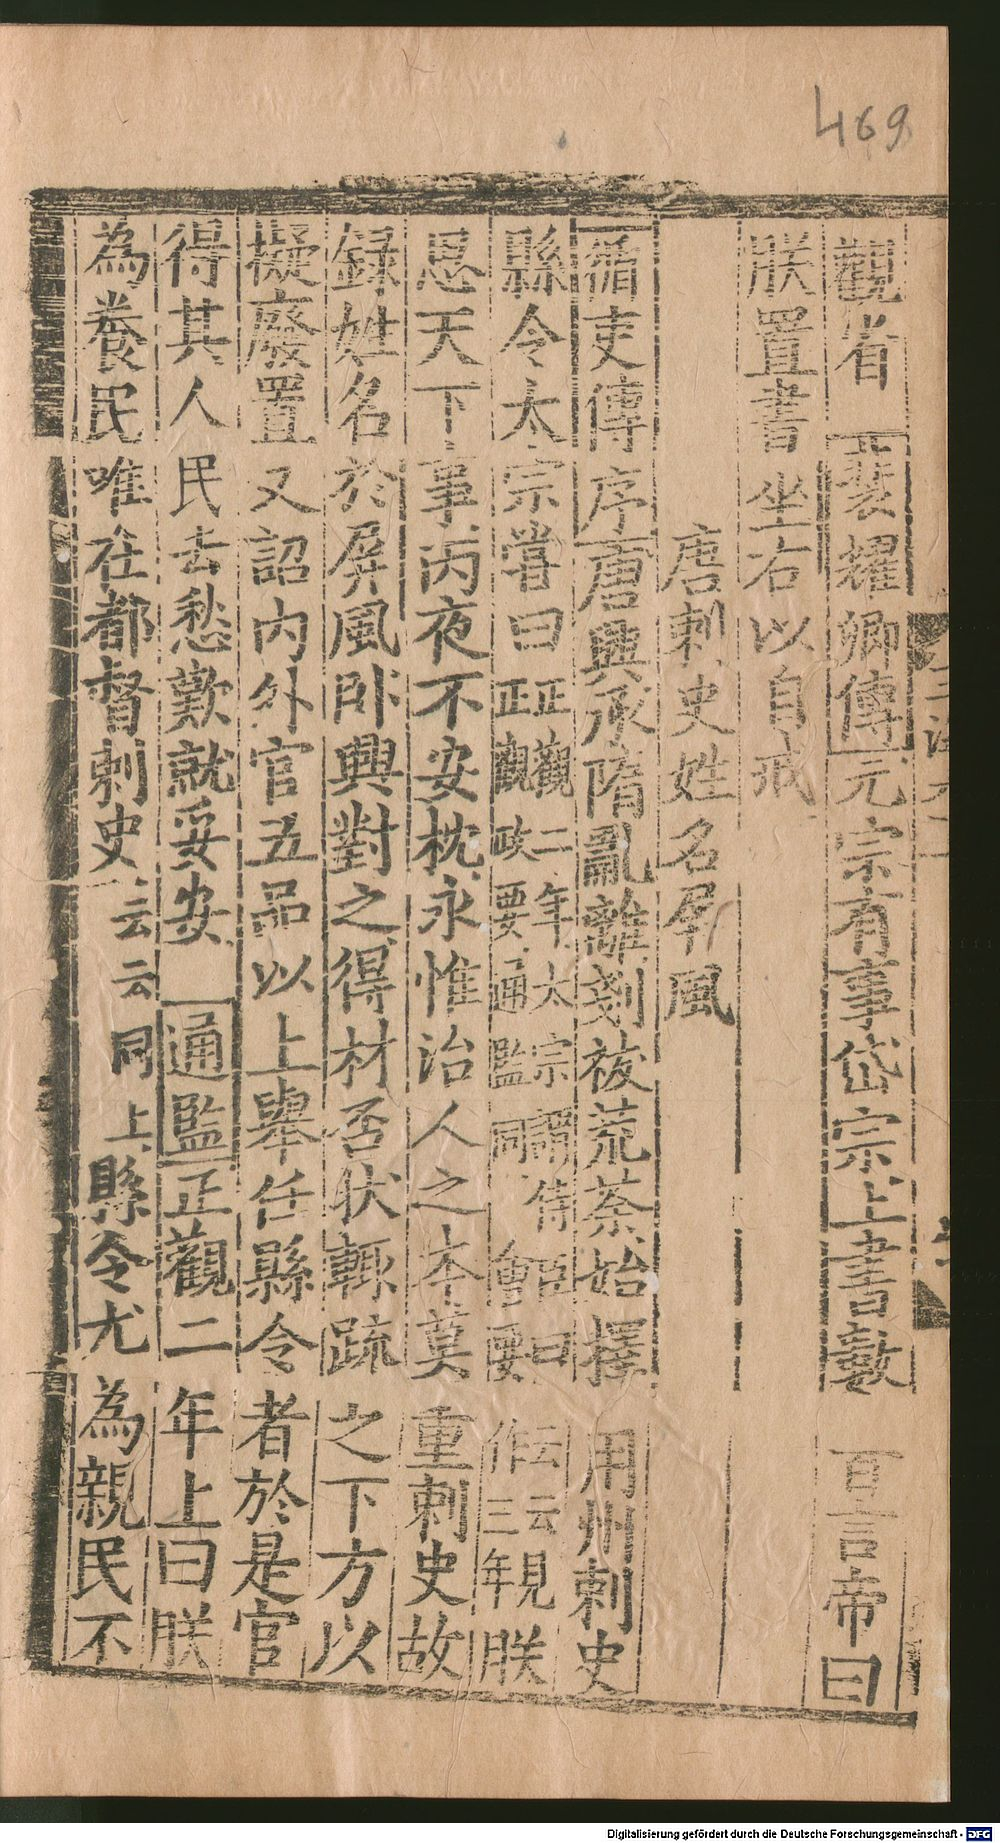 469
觀省 裴耀卿傳元宗有事岱宗上書數百言帝曰
朕置書坐右以自戒
唐刺史姓名屏風
循吏傳序唐興承隋亂離剗祓荒荼始擇用州刺史
縣令太宗嘗曰正觀二年太宗謂侍臣曰云云見
正觀政要通監同會要作三年朕
思天下事丙夜不安枕永惟治人之本莫重刺史故
録姓名於屏風卧興對之得材否狀輒疏之下方以
擬廢置又詔内外官五品以上舉任縣令者於是官
得其人民去愁歎就妥安 通監正觀二年上曰朕
為養民唯在都督刺史云云同上縣令尤為親民不
Digitalisierung gefördert durch die Deutsche Forschungsgemeinschaft - DFG